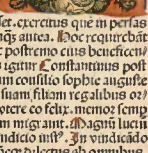 set. exercitus quē in persas
nqs̄ autea. Hoc requirebāt
t postremo eius beneficen
igitur Constantinus post
um consilio sophie auguste
suam filiam regalibus or
otere co felix. memor semp
m migrauit. Magnū lucti
ndicio iust. In vindicādo
ab omnibus